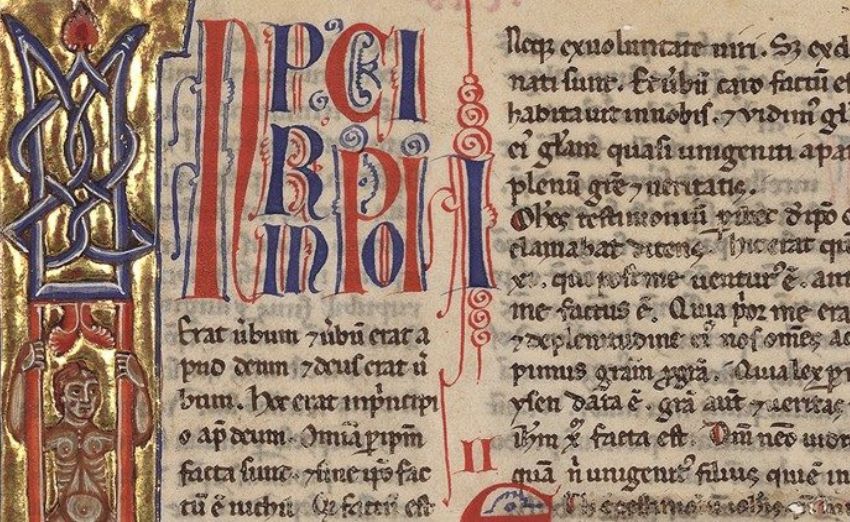 N PRINCIPIO I
Erat ūbum ⁊ ūbū erat a
pud deum ⁊ deus erat ū
bum. Hoc erat inpͥncipi
o ap̄ deum. Omīa ꝑ ipm̄
facta sunt. ⁊ sine ip̄o fac
tū ē nichil. Qḋ factū est
Neqꝫ exuoluntate uiri. Sꝫ ex d
nati sunt. Et ūbū caro factū es
habitauit innobis. ⁊ uidimꝰ gl
eiꝰ glam̄ quasi unigeniti a pat
plenū gr̄e ⁊ ueritatis.
Ioh̄es testimoniū ꝑhibet d̄ ip̄o c
clamabat dicens. hic erat que
xi. qui post me uenturꝰ ē. ant
me factus ē. Quia pͥor me era
⁊ de plenitudine eiꝰ nos om̄es ac
pimus grām ꝓ grā. Quia lex ꝑ
ysen data ē. grā aut̄ ⁊ ueritas
ih̄m x̄ facta est. Dm̄ nēo uidi
II
quā n̄ unigenitꝰ filius qui ē in